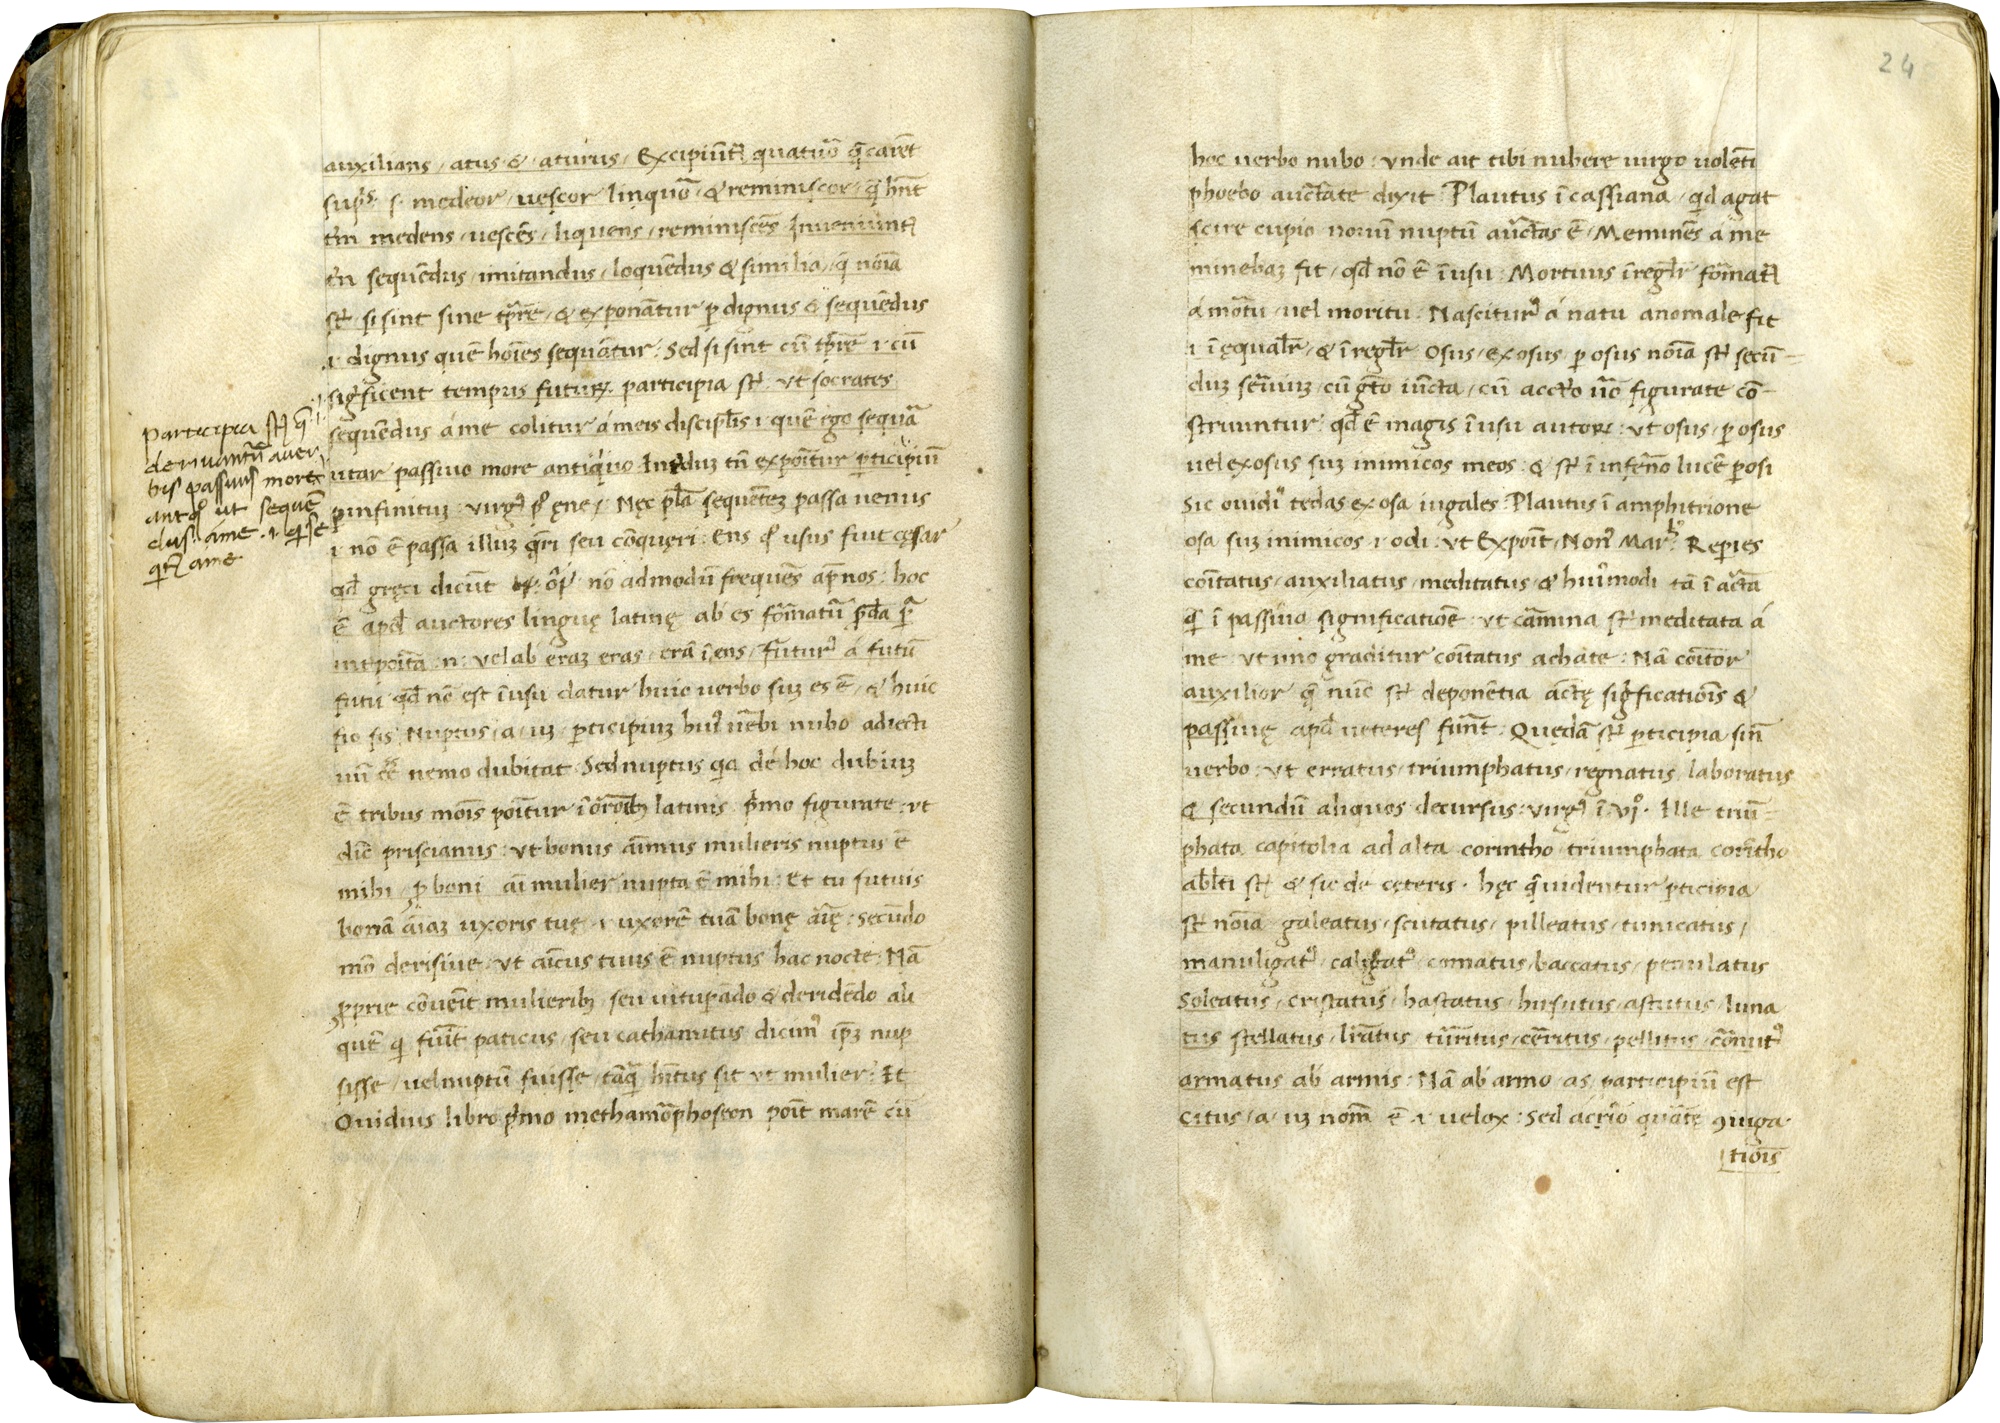 auxilians / atus & / aturus / Excipiūt͛ quatuō q̄ carēt
sup̄s s medeor / uescor linquō / & reminiscor / q̄ hn̄t
tm̄ medens / uescēs / liquens / reminiscēs Inueniunt͛
tn̄ sequēdus / imitandus / loquēdus & similia / q̄ noīa
st͛ si sint sine tp̄re / & exponāt̄ur p̱ dignus & sequēdus
.i. dignus quē hoīes sequāntur : Sed si sint cū tp̄re .i. cū
significent tempus futuꝝ participia st͛ : vt socrates
sequēdus á me colitur á meis discipl̄is .i. quē ego sequā
utar passiuo more antiquo Int͛duꝫ tn̄ expoīt̄ur p̱ticipiū
p̱ infinitiuꝫ : virg̾
Nęc pl̄a sequēteꝫ passa uenus
.i. nō ē passa illuꝫ q̄ri seu cōquęri : Ens
usus fuit cęsar
qd̄ gręci dicūt
nō ad modū frequēs ap̄ nos : hoc
ē apd̄ auctores linguę latinę ab es fōrmatū
int͛poīta : n : uel ab eraꝫ eras / erā ī ens / Futur᾽ á futū
futu qd̄ nō est ī usu datur huic uerbo suꝫ es ē / & huic
fio fis Nuptus / a / uꝫ / p̱ticipiuꝫ hui᾽ uēbi nubo adiecti
uū
nemo dubitat : Sed nuptus
dé hoc dubiuꝫ
ē tribus mōis poīt̄ur ī ōrōībꝫ latinis p̄mo figurate : vt
dic̄ priscianus : vt bonus aīmus mulieris nuptus ē
mihi / ꝓ boni aī mulier nupta ē mihi : Et tu futuis
bonā aīaꝫ uxoris tuę .i. uxorē tuā bonę aīę : Secūdo
mō derisiue / vt aīcus tuus ē nuptus hac nocte : Nā
ꝓprie cōuēit mulieribꝫ / seu uitup̱ādo & deridēdo ali
quē qi fuīt paticus / seu cathamitus dicim᾽ ip̄ꝫ nup
sisse / uel nuptū fuisse / tāq̄ hītus sit vt mulier : Et
Ouidius libro p̄mo methamōphoseon poīt marē cū
Participia st͛ q̄
deriuantur̄ a uer
bis passiuis more
antqo ut sequē
dus á me .i. qi se
qit͛ á me
24
hoc uerbo nubo : vnde ait tibi nubere uirgo uolēti
phoebo auctāte dixit : Plautus ī cassiana / qid agat
scire cupio nouū nuptū auctas ē / Meminēs á me
minebaꝫ fit / qd̄ nō ē ī usu : Mortuus īregl̄r fōrmat͛
á mōtu / uel moritu : Nascitur᾽ á natu anomale fit
.i. ī ęqual̄r / & īregl̄r Osus / exosus p̱osus noīa st͛ secū-
duꝫ seruiuꝫ / cū gt̄o iūcta / cū acct̄o uō figurate cō-
struuntur : qd̄ ē magis ī usu autoꝝ : vt osus / p̱osus
uel exosus suꝫ inimicos meos : & st͛ ī infęrno lucē p̱osi
Sic ouidi᾽ tędas exosa iugales : Plautus ī amphitrione
osa suꝫ inimicos .i. odi : vt Expoīt Noni᾽ Mar᾽ : Rep̱ies
coītatus / auxiliatus / meditatus / & hui᾽modi tā ī actā
q̄ ī passiua significatiōe : vt cāmina st͛ meditata á
me : vt uno graditur coītatus achate : Nā coītor
auxilior q̄ nūc st͛ deponētia actę significatiōis &
passiuę apd̄ ueteres fuīt : Quędā st͛ p̱ticipia sin̄
uerbo : vt erratus / triumphatus / regnatus / laboratus
& secundū aliquos decursus : virg̾ ī vjº. Ille triū-
phata capitolia ad alta corintho triumphata corītho
abl̄ti st͛ & sic dé cęteris . hęc q̄ uidentur p̱ticipia
st͛ noīa galeatus / scutatus / pilleatus / tunicatus /
manuligat᾽ caligat᾽ comatus / baccatus / penulatus
Soleatus / cristatus / hastatus / hirsutus / astutus / luna
tus stellatus / lirātus / tūrritus / cērritus / pellitus / cōrnut᾽
armatus ab armis : Nā ab armo / as participiū est
Citus / a / uꝫ nom̄ ē .i. uelox : Sed
quātę ꝯiuga-
tiōis